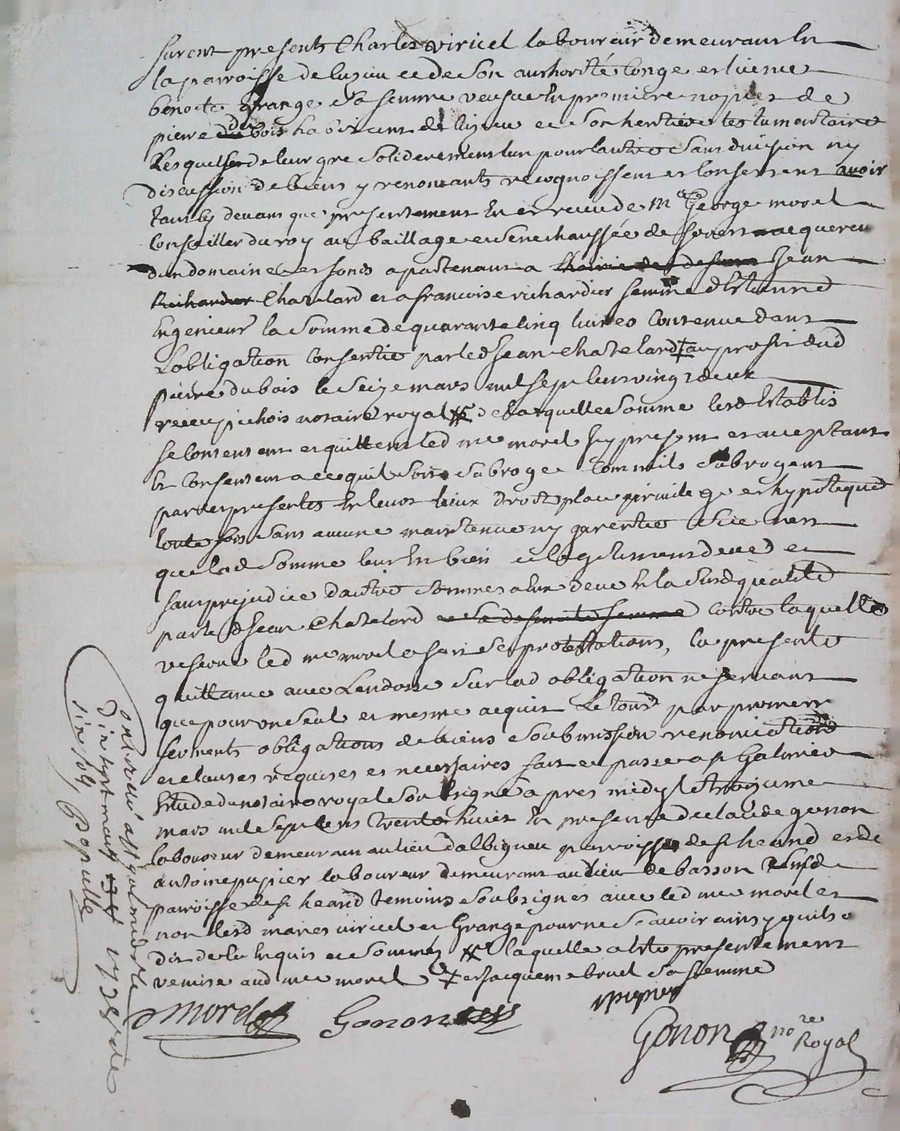 furent presents Charles viricel laboureur demeurant En
la parroisse de luzieu et de Son authorité Conge et licence
benoite grange Sa femme veufve En premiere nopces de
pierre dubois habitant de lusieu et Son heritiere testamentaire
Lesquels de leur gre Soliderement lun pour lautre Sans division ny
discussion de biens y renoncants recognoissent et Confessent avoir
tant Cy devant que presentement En et receu de Mr George morel
Conseiller du roy au baillage et Senechaussée de forest acquereur
dun domaine et fonds apartenant a Jean
Richardier Chatelard et a francoise richardier femme d'Etienne
ingenieur la Somme de quarante Cinq livres Contenue dans
Lobligation Consentie par led Jean Chatelard ‡ au profit dud
pierre dubois le Seize mars mil sept Cent vingt deux
receu pichois notaire royal ⁂ de Laquelle Somme lesd Establis
Se Contentent et quittent led me morel Icy present et acceptant
Et Consentent a ce quil Soit Subroge Comme ils Subrogent
par ces presentes En leurs lieux droit place privilege et hypoteque
toute fois Sans aucune maintenue ny garentie Si Ce nest
que lad Somme leur Est bien et legitimement deue et
Sans prejudice dautre Sommes a eux deue En la Susd qualité
par led Jean Chatelard et sa defunte femme Contre laquelle
reserve led me morel a fait Ses protestations, la presente
quittance avec Lendosse Sur lad obligation ne Servant
que pour un Seul et mesme acquit Le tout par promesses
Serments obligations de biens Soubmission renonciations
et clauses requises et necessaires fait et passe a St Galmier
Etude du notaire royal Soubsigné apres midy le troizieme
mars mil Sept Cens trente huit En presence de Claude gonon
laboureur demeurant au lieu dalbigneu parroisse de St heand et de
antoine pupier laboureur demeurant au lieu de basson Susd
parroisse de St heand temoins Soubsignés avec led me morel et
non lesd maries viricel et Grange pour ne Scavoir ainsy quils ont
dit de ce Enquis et Sommés ⁂ laquelle a Eté presentement
remise aud me morel ‡ et Jacqueme bruel Sa femme
Morel Gonon pupier
Gonon nore Royal
Controlé a St galmier le
dix sept mars 1738 Re
six sols Populle